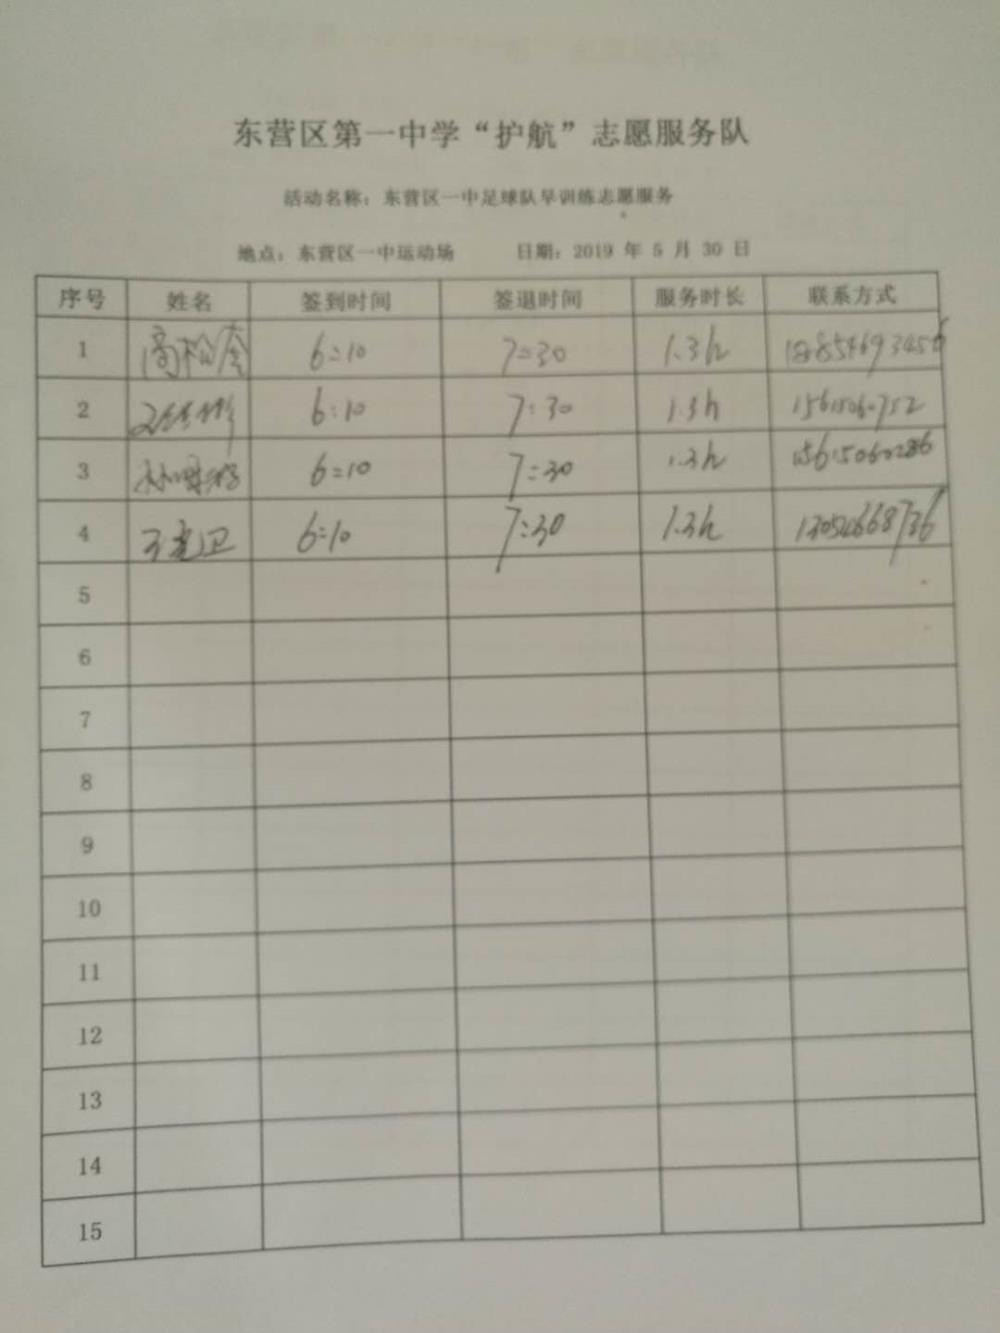 东营区第一中学“护航”志愿服务队
活动名称：东营区一中足球队早训练志愿服务
地点：东营区一中运动场 日期：2019 年 5 月 30 日
序号 姓名 签到时间 签退时间 服务时长 联系方式
1 6:10 7:30 1.3h
2 6:10 7:30 1.3h
3 6:10 7:30 1.3h 15615060286
4 6:10 7:30 1.3h
5
6
7
8
9
10
11
12
13
14
15